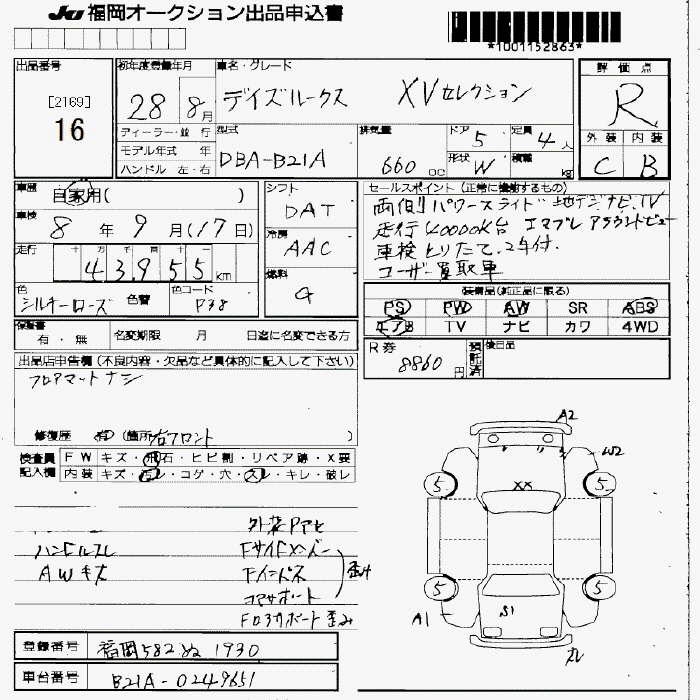 JU 福岡オークション出品申込書
*1001152863*
出品番号
[2169]
16
初年度登録年月
28 8月
車名・グレード
デイズルークス XVセレクション
評価点
R
外装 内装
C B
ディーラー・並行
モデル年式 年
ハンドル 左・右
型式
DBA-B21A
排気量
660 cc
ドア 5
定員 4人
形状 W
積載 kg
車歴
自家用( )
車検
8年 9月(17日)
走行
十 万 千 百 十 一
43955 km
色
シルキーローズ
色替
色コード
P38
シフト
DAT
冷房
AAC
燃料
G
セールスポイント(正常に機能するもの)
両側パワースライド 地デジナビ.TV
走行40000K台 エマブレ アラウンドビュー
車検とりたて、2年付.
ユーザー買取車
装備品(純正品に限る)
PS PW AW SR ABS
エアB TV ナビ カワ 4WD
保証書
有・無
名変期限 月 日迄に名変できる方
R券
8860円
預託済
後日品
出品店申告欄(不良内容・欠品など具体的に記入して下さい)
フロアマットナシ
修復歴 有(箇所 右フロント )
検査員記入欄
FW キズ・飛石・ヒビ割・リペア跡・X要
内装 キズ・ヨゴレ・コゲ・穴・スレ・キレ・破レ
外装Pアセ
ハンドルスレ
AWキズ
Fサイドメンバー
Fインパネ
コアサポート
歪み
Fロアサポート歪み
登録番号
福岡582ぬ1930
車台番号
B21A-0249651
A2
W2
XX
5
5
5
5
S1
A1
スレ